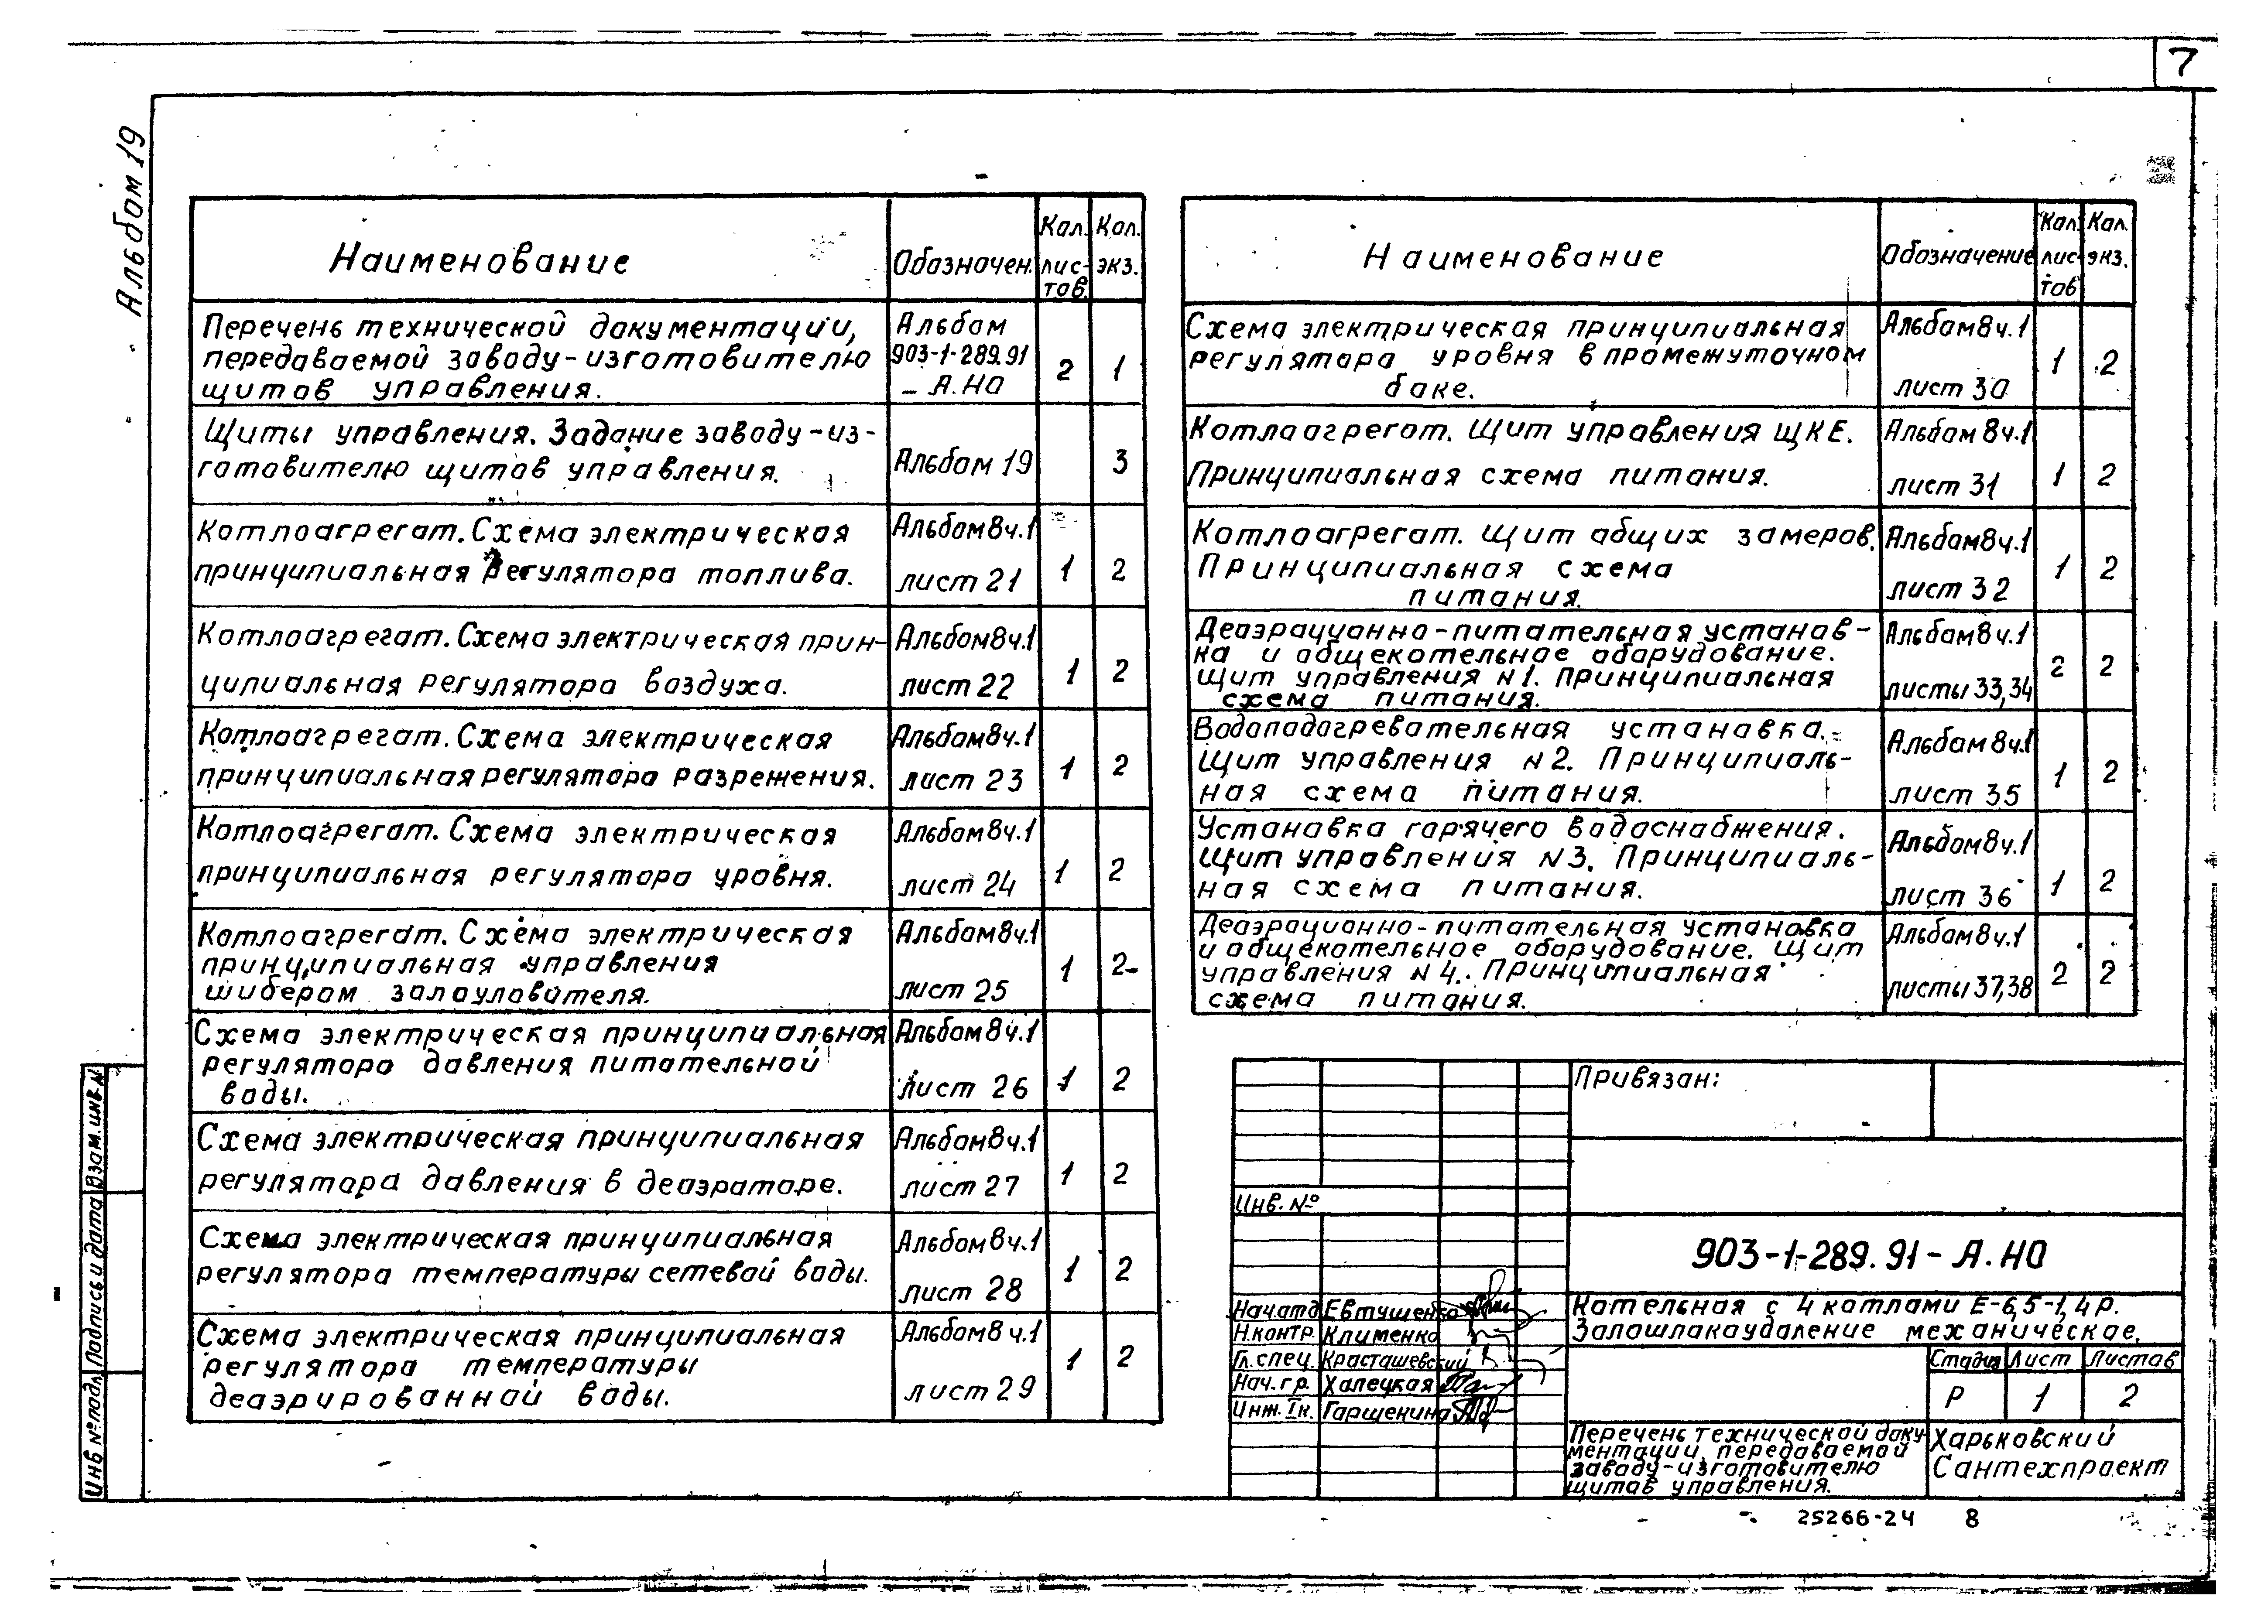 7
Альбом 19
Наименование
Обозначен.
Кол. лис- тов.
Кол. экз.
Перечень технической документации,
передаваемой заводу-изготовителю
щитов управления.
Альбом
903-1-289.91
- А.НО
2
1
Щиты управления. Задание заводу-из-
готовителю щитов управления.
Альбом 19
3
Котлоагрегат. Схема электрическая
принципиальная регулятора топлива.
Альбом 8 ч.1
лист 21
1
2
Котлоагрегат. Схема электрическая прин-
ципиальная регулятора воздуха.
Альбом 8 ч.1
лист 22
1
2
Котлоагрегат. Схема электрическая
принципиальная регулятора разрежения.
Альбом 8 ч.1
лист 23
1
2
Котлоагрегат. Схема электрическая
принципиальная регулятора уровня.
Альбом 8 ч.1
лист 24
1
2
Котлоагрегат. Схема электрическая
принципиальная управления
шибером золоуловителя.
Альбом 8 ч.1
лист 25
1
2
Схема электрическая принципиальная
регулятора давления питательной
воды.
Альбом 8 ч.1
лист 26
1
2
Схема электрическая принципиальная
регулятора давления в деаэраторе.
Альбом 8 ч.1
лист 27
1
2
Схема электрическая принципиальная
регулятора температуры сетевой воды.
Альбом 8 ч.1
лист 28
1
2
Схема электрическая принципиальная
регулятора температуры
деаэрированной воды.
Альбом 8 ч.1
лист 29
1
2
Наименование
Обозначение
Кол. лис- тов
Кол. экз.
Схема электрическая принципиальная
регулятора уровня в промежуточном
баке.
Альбом 8 ч.1
лист 30
1
2
Котлоагрегат. Щит управления ЩКЕ.
Принципиальная схема питания.
Альбом 8 ч.1
лист 31
1
2
Котлоагрегат. Щит общих замеров.
Принципиальная схема
питания.
Альбом 8 ч.1
лист 32
1
2
Деаэрационно-питательная установ-
ка и общекотельное оборудование.
Щит управления N1. Принципиальная
схема питания.
Альбом 8 ч.1
листы 33,34
2
2
Водоподогревательная установка.
Щит управления N2. Принципиаль-
ная схема питания.
Альбом 8 ч.1
лист 35
1
2
Установка горячего водоснабжения.
Щит управления N3. Принципиаль-
ная схема питания.
Альбом 8 ч.1
лист 36
1
2
Деаэрационно-питательная установка
и общекотельное оборудование. Щит
управления N4. Принципиальная
схема питания.
Альбом 8 ч.1
листы 37,38
2
2
Привязан:
Инв. №
903-1-289.91-А.НО
Нач.отд Евтушенко
Н.контр. Клименко
Гл.спец. Красташевский
Нач.гр. Халецкая
Инж. Iк. Гаршенина
Котельная с 4 котлами Е-6,5-1,4Р.
Золошлакоудаление механическое.
Стадия Лист Листов
Р 1 2
Перечень технической доку-
ментации, передаваемой
заводу-изготовителю
щитов управления.
Харьковский
Сантехпроект
25266-24 8
Взам.инв.N
Подпись и дата
Инв №подл